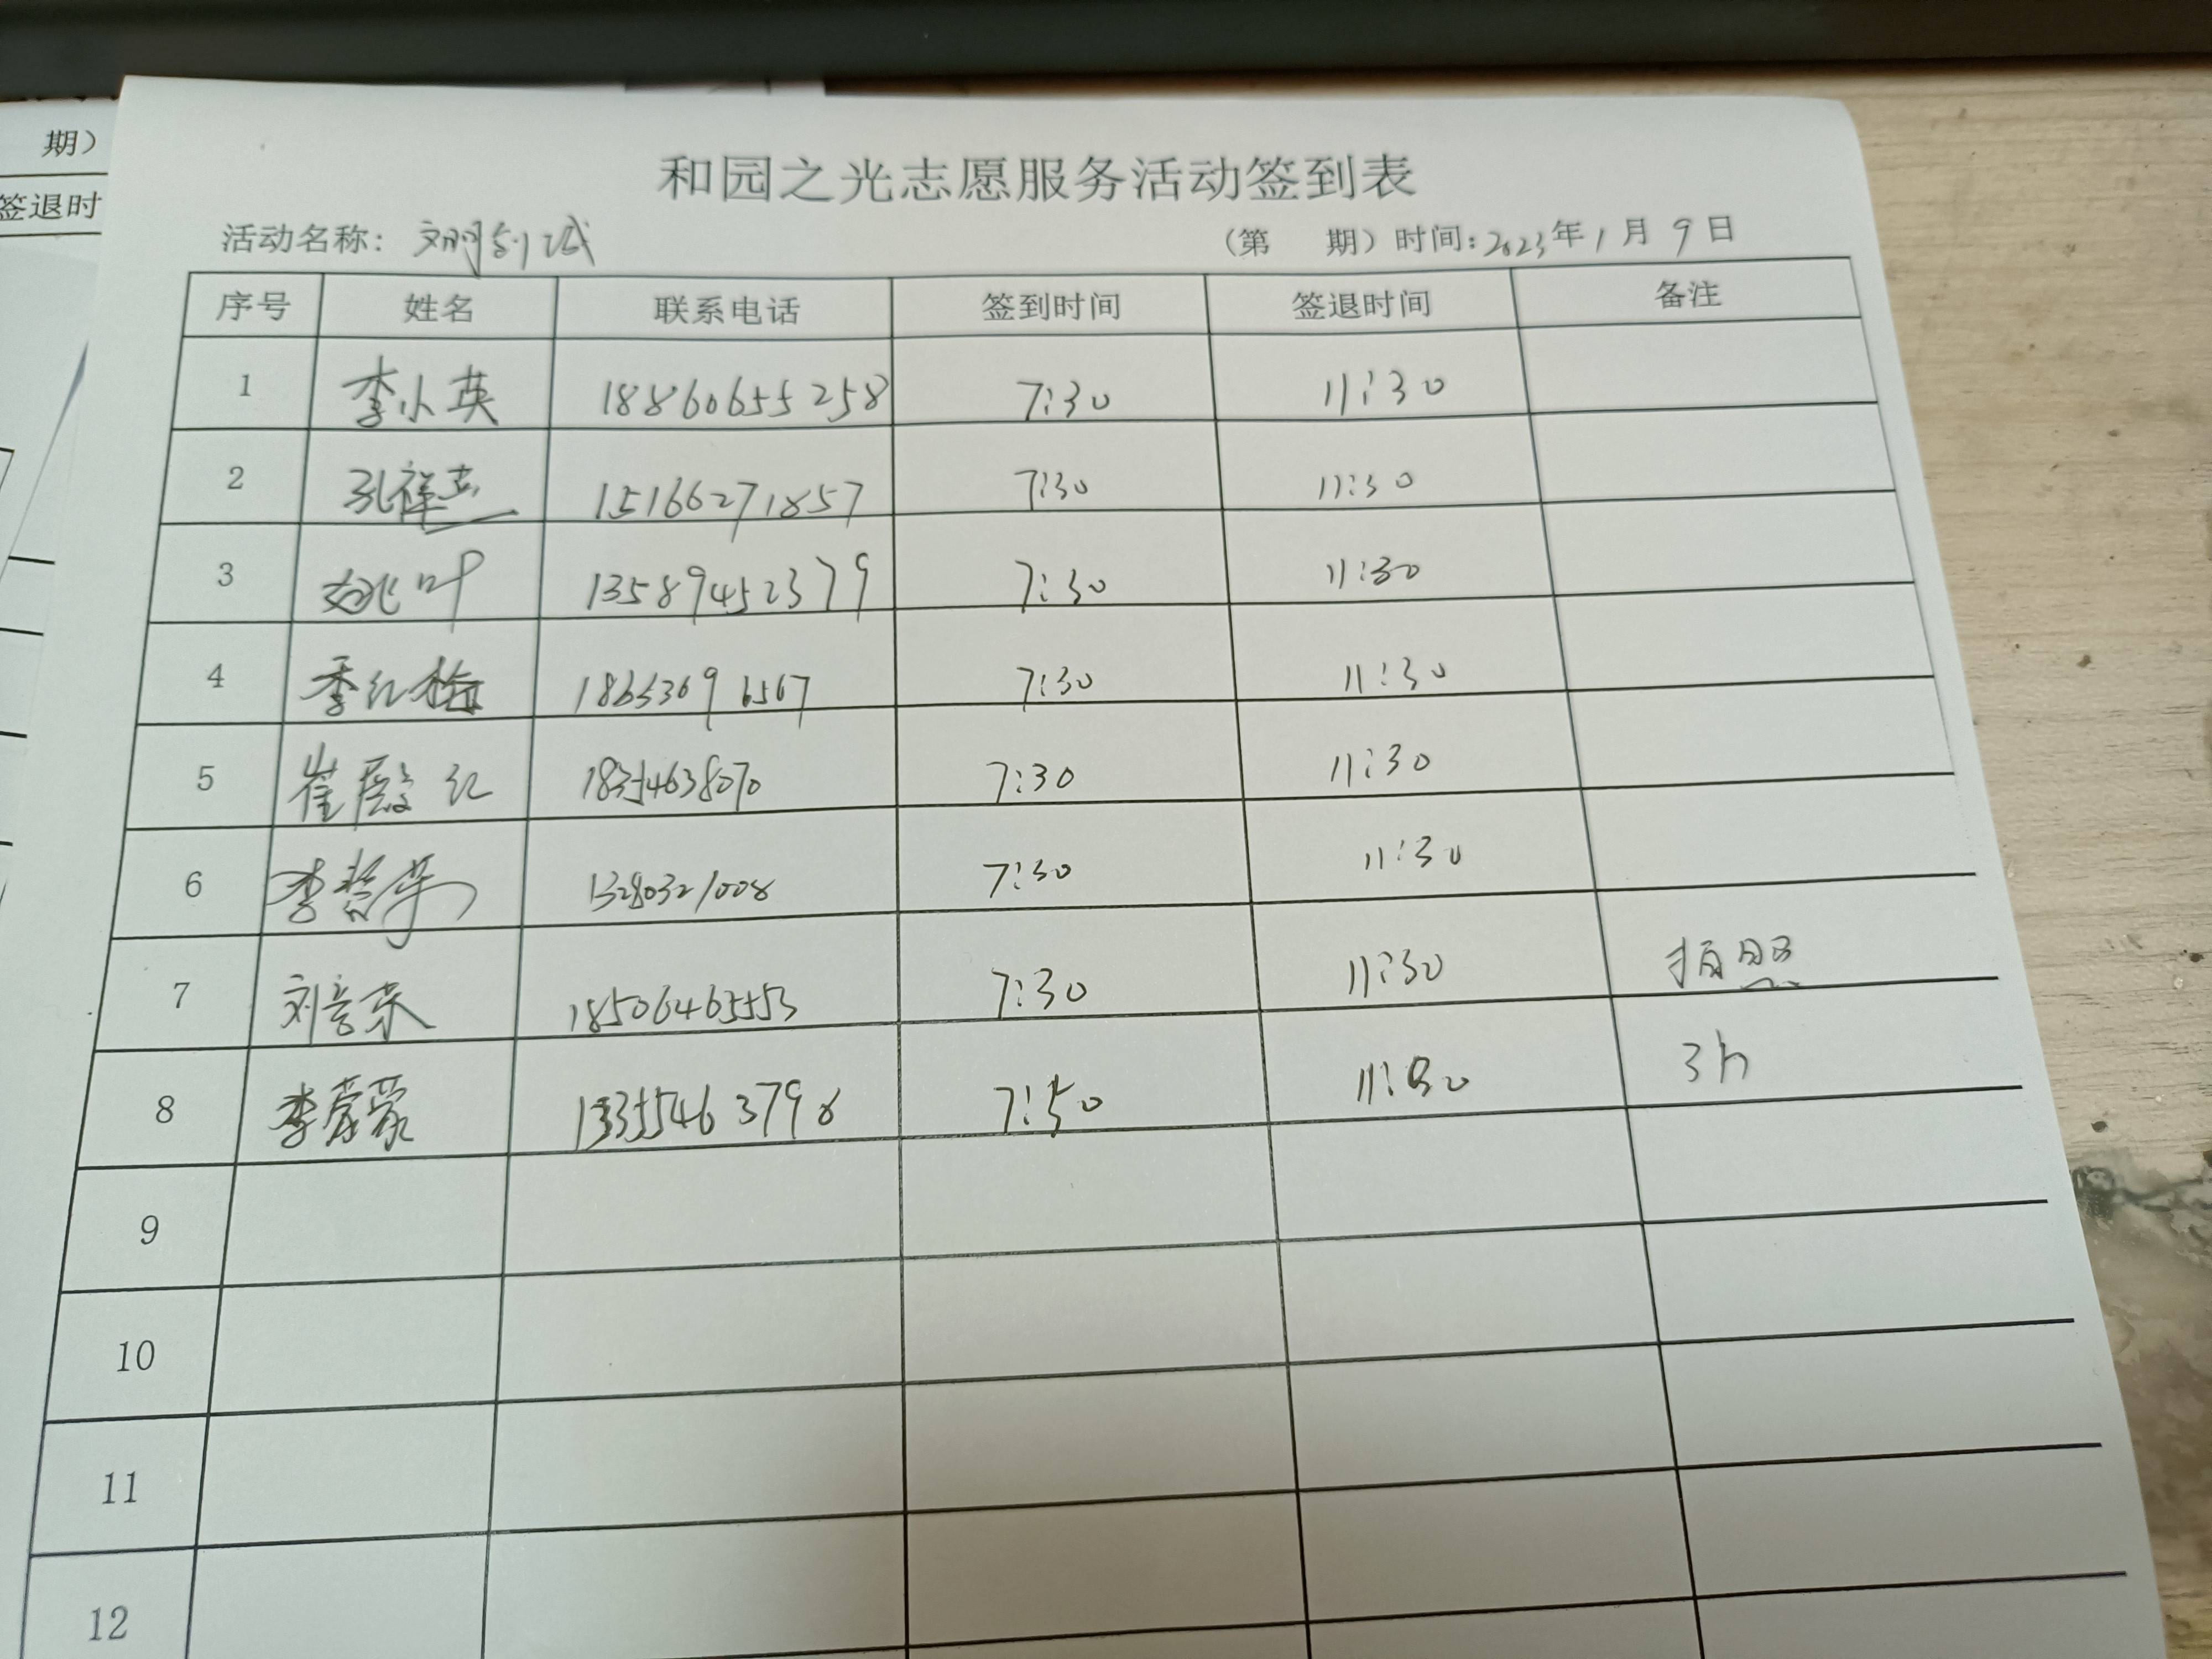 期）
签退时
和园之光志愿服务活动签到表
活动名称：文明创城 （第 期）时间：2023年1月9日
序号 姓名 联系电话 签到时间 签退时间 备注
1 李小英 18860655258 7:30 11:30
2 孔祥志 15166271857 7:30 11:30
3 姚叶 13589452379 7:30 11:30
4 季红梅 7:30 11:30
5 崔殿红 18354638070 7:30 11:30
6 李 13280321008 7:30 11:30
7 刘 18506465553 7:30 11:30 拍照
8 李蒙蒙 7:50 11:30 3h
9
10
11
12